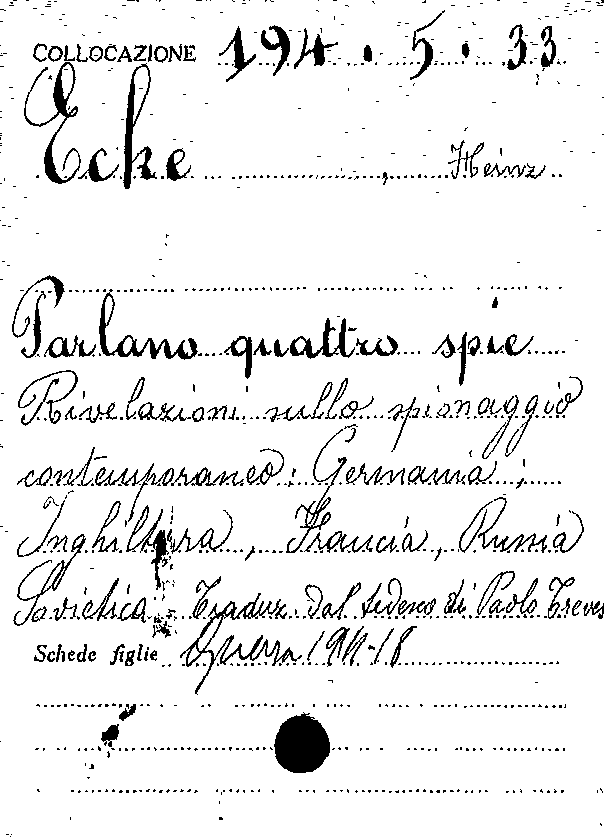 COLLOCAZIONE 194.5.33
Ecke, Heinz
Parlano quattro spie
Rivelazioni sullo spionaggio
contemporaneo: Germania,
Inghilterra, Francia, Russia
Sovietica. Traduz. dal tedesco di Paolo Treves
Schede figlie Guerra 1914-18